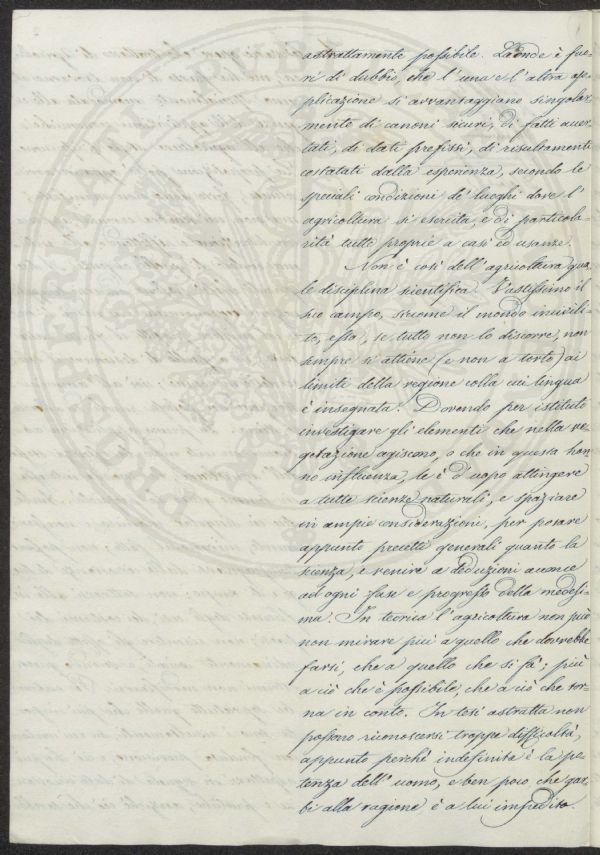 astrattamente possibile. Laonde è fuo-
ri di dubbio, che l'una e l'altra ap-
plicazione si avvantaggiano singolar
mente di canoni sicuri, di fatti accer-
tati, di dati prefissi, di risultamenti
costatati dalla esperienza, secondo le
speciali condizioni de' luoghi dove l'
agricoltura si esercita, e di particola-
rità tutte proprie a casi ed usanze.
Non è così dell'agricoltura qua-
le disciplina scientifica. Vastissimo il
suo campo, siccome il mondo incivili-
to, essa, se tutto non lo discorre, non
sempre s'attiene (e non a torto) ai
limiti della regione colla cui lingua
è insegnata. Dovendo per istituto
investigare gli elementi che nella ve-
getazione agiscono, o che in questa han
no influenza, le è d'uopo attingere
a tutte scienze naturali, e spaziare
in ampie considerazioni, per posare
appunto precetti generali quanto la
scienza, e venire a deduzioni acconce
ad ogni fase e progresso della medesi-
ma. In teorica l'agricoltura non può
non mirare più a quello che dovrebbe
farsi, che a quello che si fa; più
a ciò che è possibile, che a ciò che tor-
na in conto. In tesi astratta non
possono riconoscersi troppe difficoltà,
appunto perchè indefinita è la po-
tenza dell'uomo, e ben poco che gar-
bi alla ragione è a lui impedito.